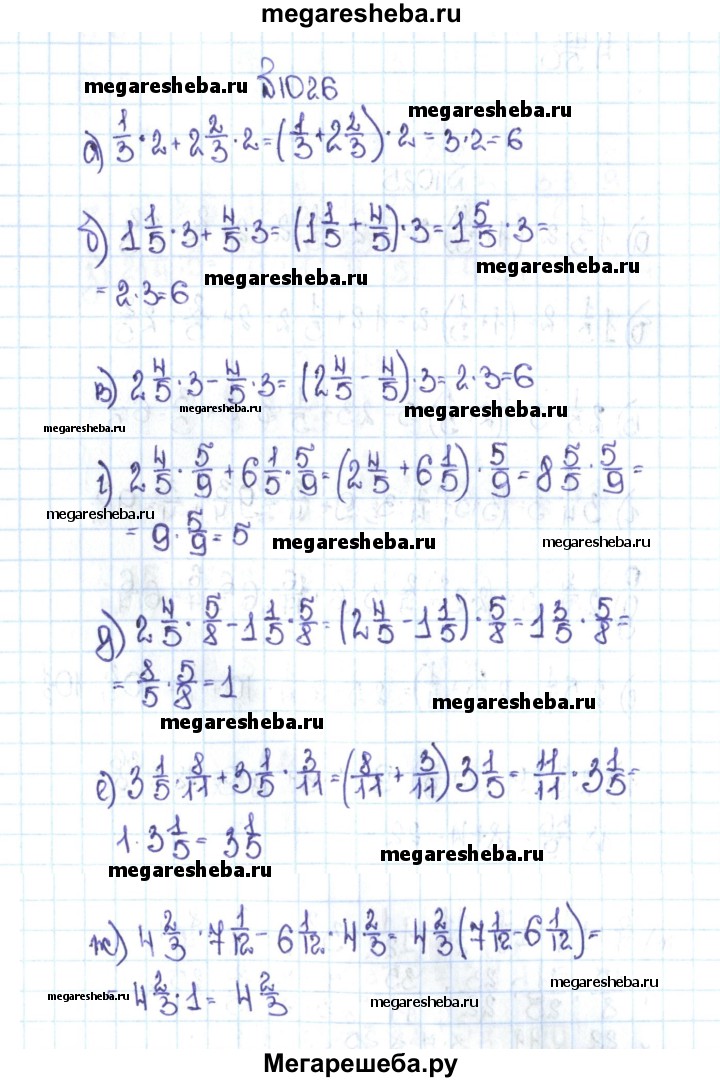 megaresheba.ru
megaresheba.ru №1026
megaresheba.ru
а) 1/3 · 2 + 2 2/3 · 2 = (1/3 + 2 2/3) · 2 = 3 · 2 = 6
б) 1 1/5 · 3 + 4/5 · 3 = (1 1/5 + 4/5) · 3 = 1 5/5 · 3 =
megaresheba.ru
megaresheba.ru
= 2 · 3 = 6
в) 2 4/5 · 3 - 4/5 · 3 = (2 4/5 - 4/5) · 3 = 2 · 3 = 6
megaresheba.ru
megaresheba.ru
megaresheba.ru
г) 2 4/5 · 5/9 + 6 1/5 · 5/9 = (2 4/5 + 6 1/5) · 5/9 = 8 5/5 · 5/9 =
megaresheba.ru
= 9 · 5/9 = 5
megaresheba.ru
megaresheba.ru
д) 2 4/5 · 5/8 - 1 1/5 · 5/8 = (2 4/5 - 1 1/5) · 5/8 = 1 3/5 · 5/8 =
= 8/5 · 5/8 = 1
megaresheba.ru
megaresheba.ru
е) 3 1/5 · 8/11 + 3 1/5 · 3/11 = (8/11 + 3/11) 3 1/5 = 11/11 · 3 1/5 =
1 · 3 1/5 = 3 1/5
megaresheba.ru
megaresheba.ru
ж) 4 2/3 · 7 1/12 - 6 1/12 · 4 2/3 = 4 2/3 (7 1/12 - 6 1/12) =
megaresheba.ru
megaresheba.ru
= 4 2/3 · 1 = 4 2/3
megaresheba.ru
Мегарешеба.ру